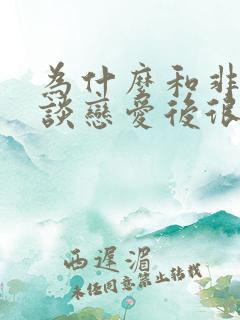 為什麼和非
談戀愛後很
西遲湄
未經同意禁止轉載